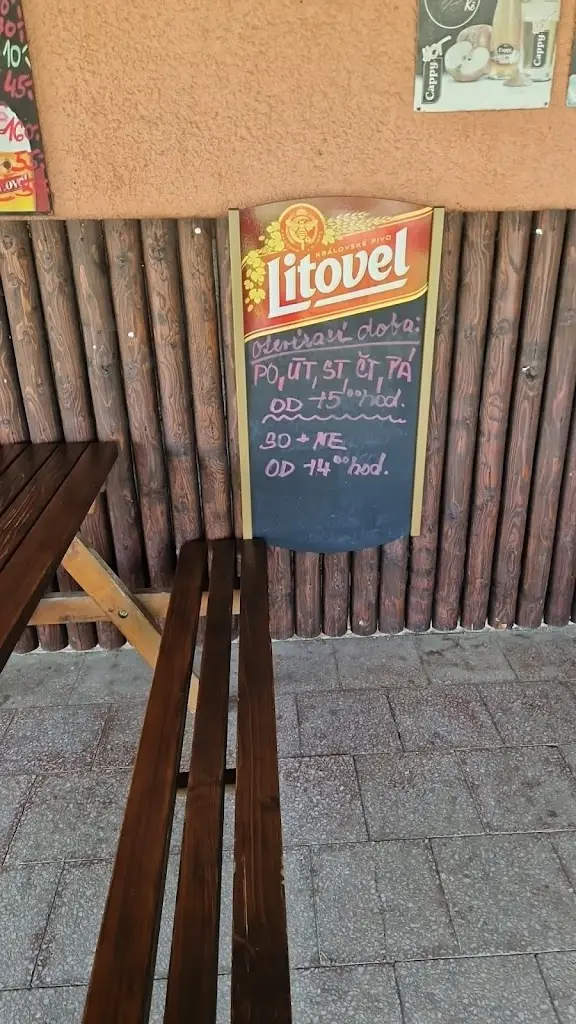 10
45.-
160.-
55.-
Kč
Cappy
Cappy
KRÁLOVSKÉ PIVO
Litovel
Otevírací doba:
PO, ÚT, ST, ČT, PÁ
OD 15⁰⁰ hod.
SO + NE
OD 14⁰⁰ hod.